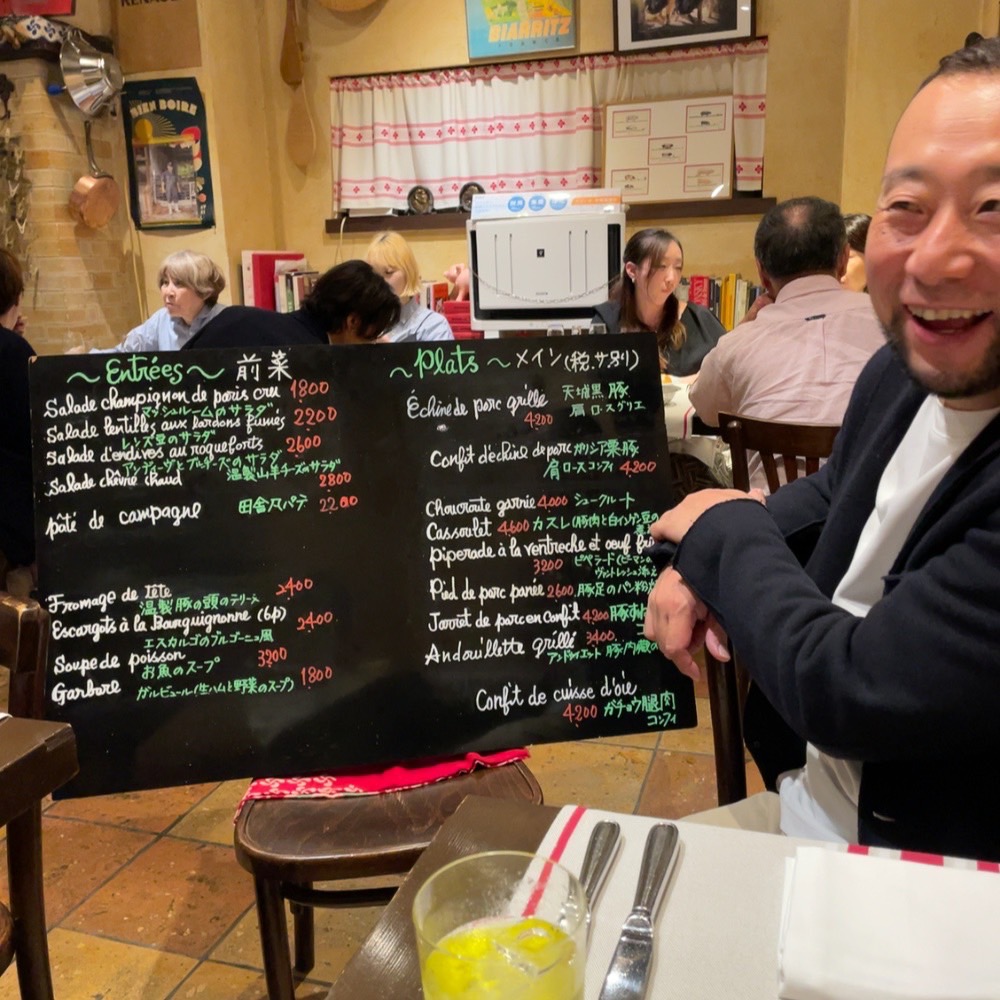 BIARRITZ
BIEN BOIRE
~Entrées~ 前菜
Salade champignon de paris cru 1800
マッシュルームのサラダ
Salade lentilles aux lardons fumés 2200
レンズ豆のサラダ
Salade d'endives au roqueforts 2600
アンディーヴとブルチーズのサラダ
Salade chèvre chaud 温製山羊チーズのサラダ
2800
pâté de campagne 田舎風パテ 2200
Fromage de Tête 2400
温製豚の頭のテリーヌ
Escargots à la Bourguignonne (6p) 2400
エスカルゴのブルゴーニュ風
Soupe de poisson 3200
お魚のスープ
Garbure 1800
ガルビュール(生ハムと野菜のスープ)
~Plats~ メイン(税.サ.別)
Échine de porc grillé 天城黒豚
4200 肩ロースグリエ
Confit d'échine de porc ガリシア栗豚
肩ロースコンフィ 4200
Choucroute garnie 4000 シュークルート
Cassoulet 4600 カスレ(豚肉と白インゲン豆の
piperade à la ventreche et oeuf
3200 ピペラード(ピーマンの
ヴァントレッシュ添え
Pied de porc panée 2600 豚足のパン粉
Jarret de porc en confit 4200 豚すね
Andouillette grillé 3400
アンドゥイエット 豚/内臓の
Confit de cuisse d'oie
4200 ガチョウ腿肉
コンフィ